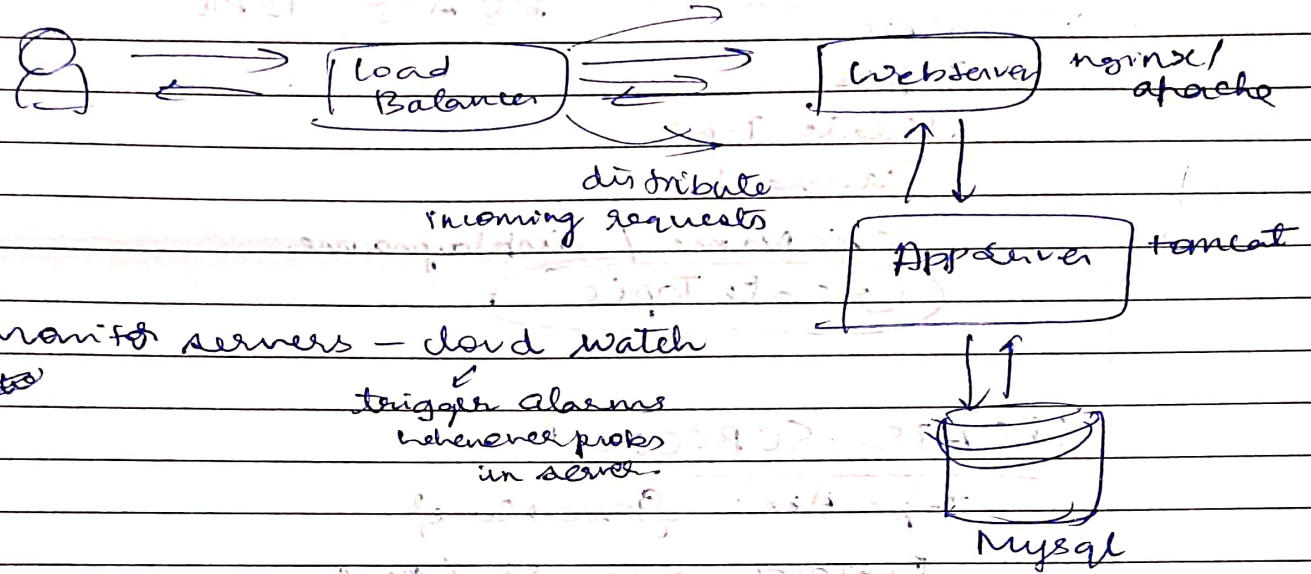 Load
Balancer
Webserver
nginx/
apache
distribute
incoming requests
Appserver
tomcat
monitor servers - cloud watch
trigger alarms
whenever probs
in server.
Mysql